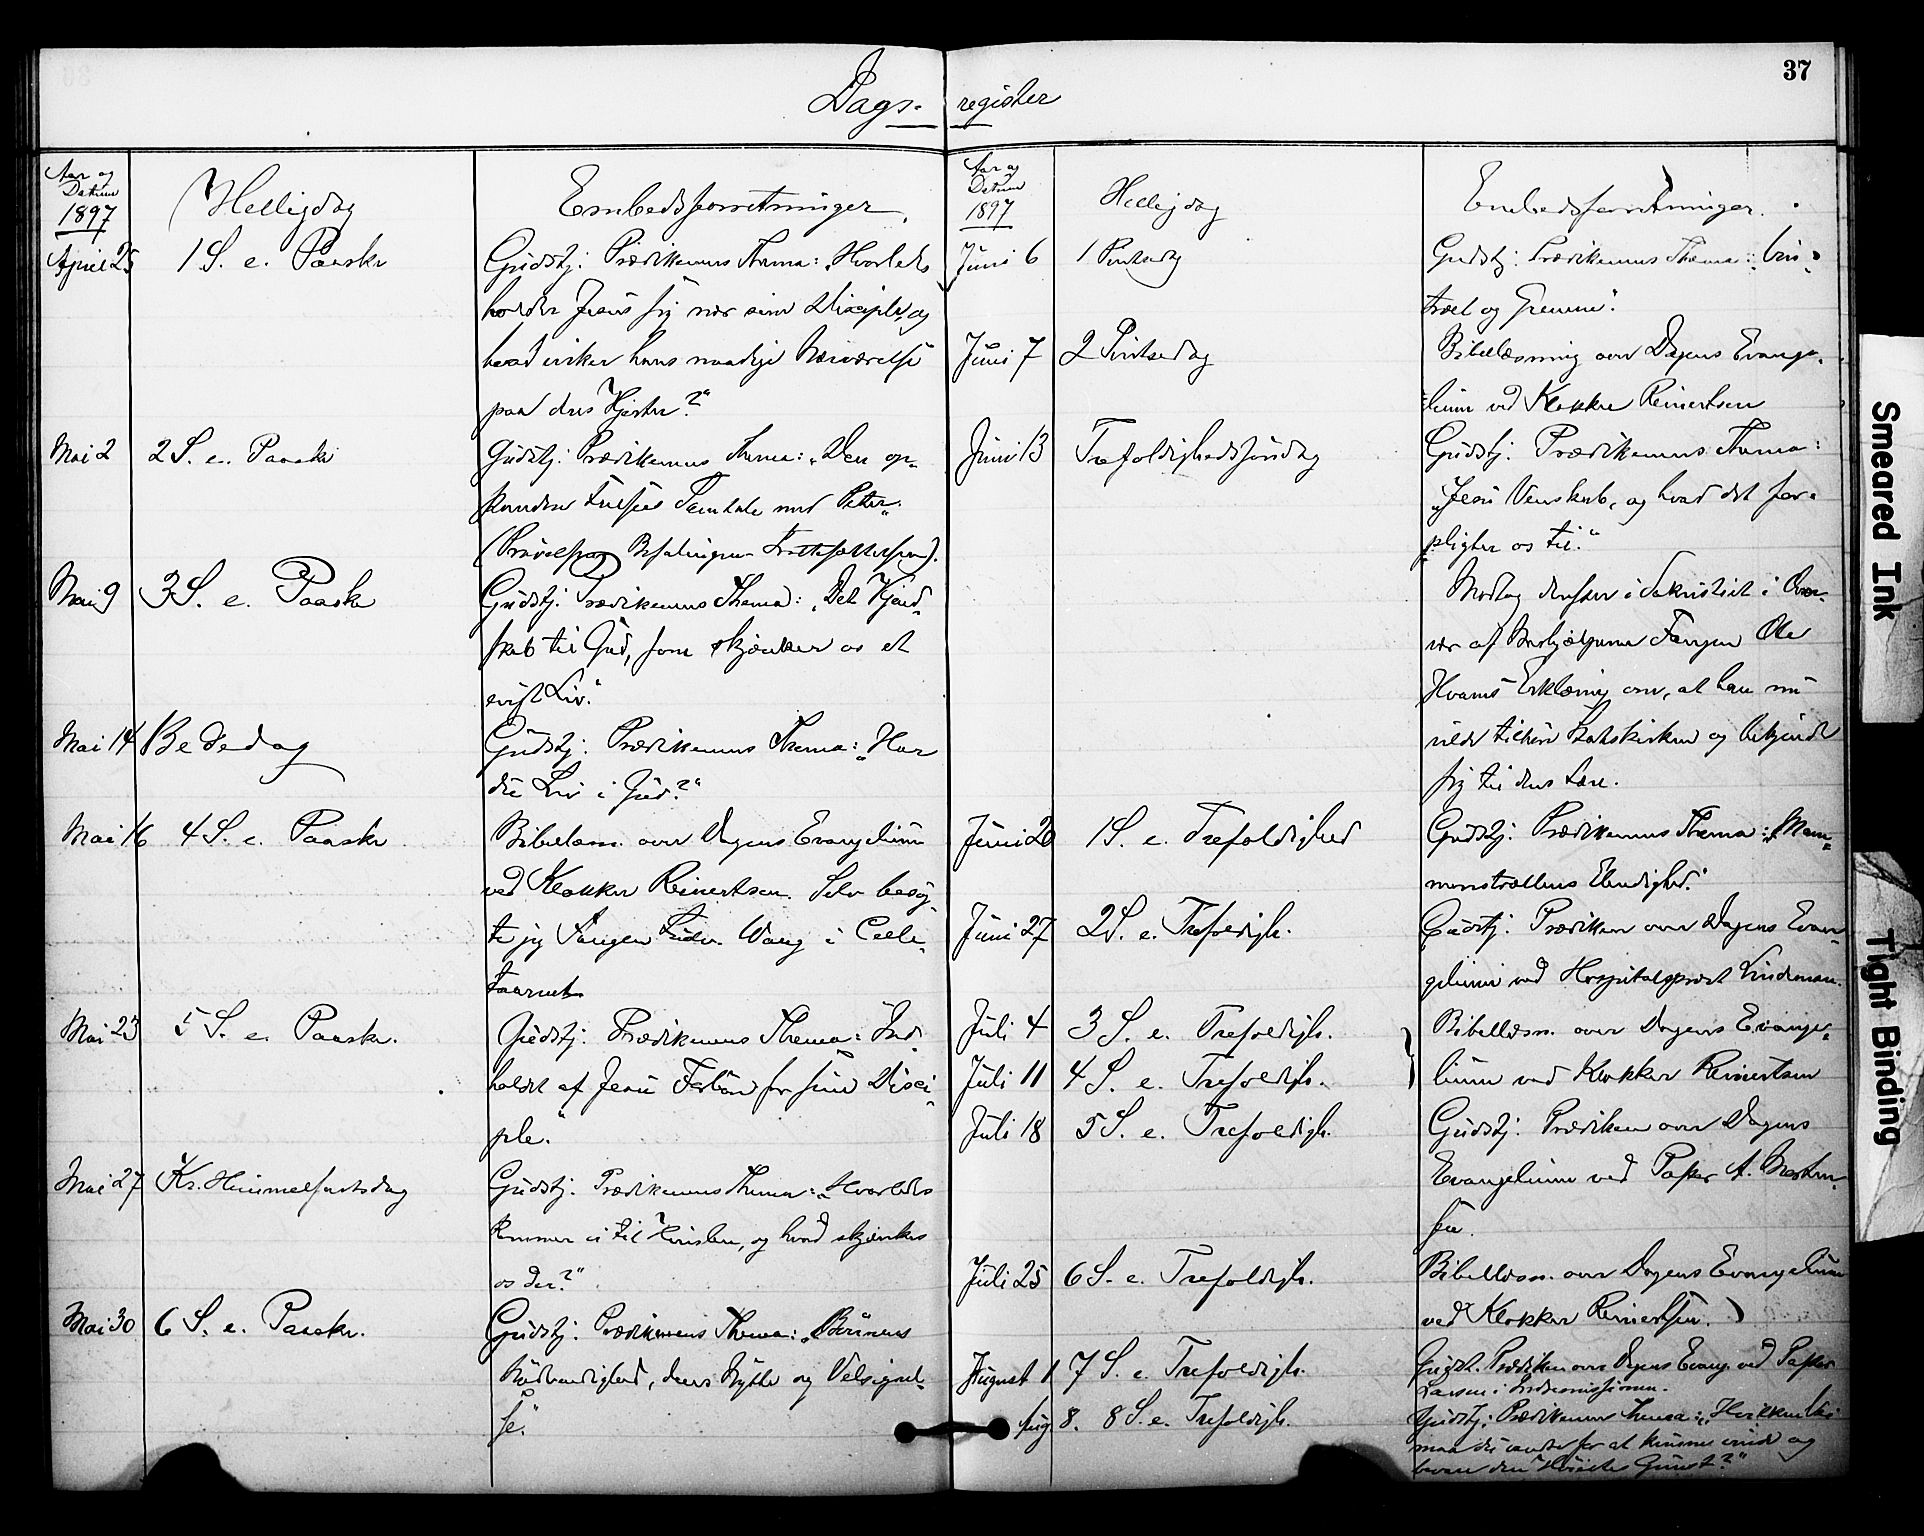 37
Dags-register
Aar og
Datum
1897
Helligdag
Embedsforretninger.
April 25
1 S. e. Paaske
Gudstj. Prædikenens Thema: „Hvorledes
holder Jesus sig nær sine Disciple, og
hvad virker hans naadige Nærværelse
paa deres Hjerter?"
Mai 2
2 S. e. Paaske
Gudstj. Prædikenens Thema: „Den op-
standne Frelsers Samtale med Peter".
(Prøvelsen, Befalingen
Mai 9
3 S. e. Paaske
Gudstj. Prædikenens Thema: „Det Kjend-
skab til Gud, som skjænker os et
evigt Liv."
Mai 14
Bededag
Gudstj. Prædikenens Thema: „Har
du Liv i Gud?"
Mai 16
4 S. e. Paaske
Bibellæsn. over Dagens Evangelium
ved Klokker Reinertsen. Selv besøg-
te jeg Fangen Wang i Celle-
taarnet
Mai 23
5 S. e. Paaske.
Gudstj. Prædikenens Thema: „Ind-
holdet af Jesu Forbøn for sine Disci-
ple."
Mai 27
Kr. Himmelfartsdag
Gudstj. Prædikenens Thema: „Hvorledes
kommer vi til Himlen, og hvad skjænkes
os der?"
Mai 30
6 S. e. Paaske.
Gudstj. Prædikenens Thema: „Bønnens
Nødvendighed, dens Nytte og Velsignel-
se."
Aar og
Datum
1897
Helligdag
Embedsforretninger.
Juni 6
1 Pintsedag
Gudstj. Prædikenens Thema: „Vin-
træet og Grenene".
Juni 7
2 Pintsedag
Bibellæsning over Dagens Evange-
lium ved Klokker Reinertsen
Juni 13
Trefoldighedssøndag
Gudstj. Prædikenens Thema:
„Jesu Venskab, og hvad det for-
pligter os til."
Modtog derefter i Sakristiet i Over-
vær af Fangen Ole
Hvams Erklæring om, at han nu
vilde tilhøre Statskirken og bekjende
sig til dens Lære.
Juni 20
1 S. e. Trefoldighed
Gudstj. Prædikenens Thema: „Mam-
monstrællens Elendighed."
Juni 27
2 S. e. Trefoldigh.
Gudstj. Prædiken over Dagens Evan-
gelium ved Hospitalsprest Lindeman.
Juli 4
3 S. e. Trefoldigh.
Juli 11
4 S. e. Trefoldigh.
Bibellæsn. over Dagens Evange-
lium ved Klokker Reinertsen
Juli 18
5 S. e. Trefoldigh.
Gudstj. Prædiken over Dagens
Evangelium ved Pastor A. Morten-
sen.
Juli 25
6 S. e. Trefoldigh.
Bibellæsn. over Dagens Evangelium
ved Klokker Reinertsen.
August 1
7 S. e. Trefoldigh.
Gudst. Prædiken over Dagens Evang. ved Pastor
Larsen i Indremissionen.
Aug 8.
8 S. e. Trefoldigh.
Gudstj. Prædikenens Thema: „Hvilken
maa du vandre for at kunne vinde og
bevare den Høiestes Gunst?"
Smeared Ink
Tight Binding